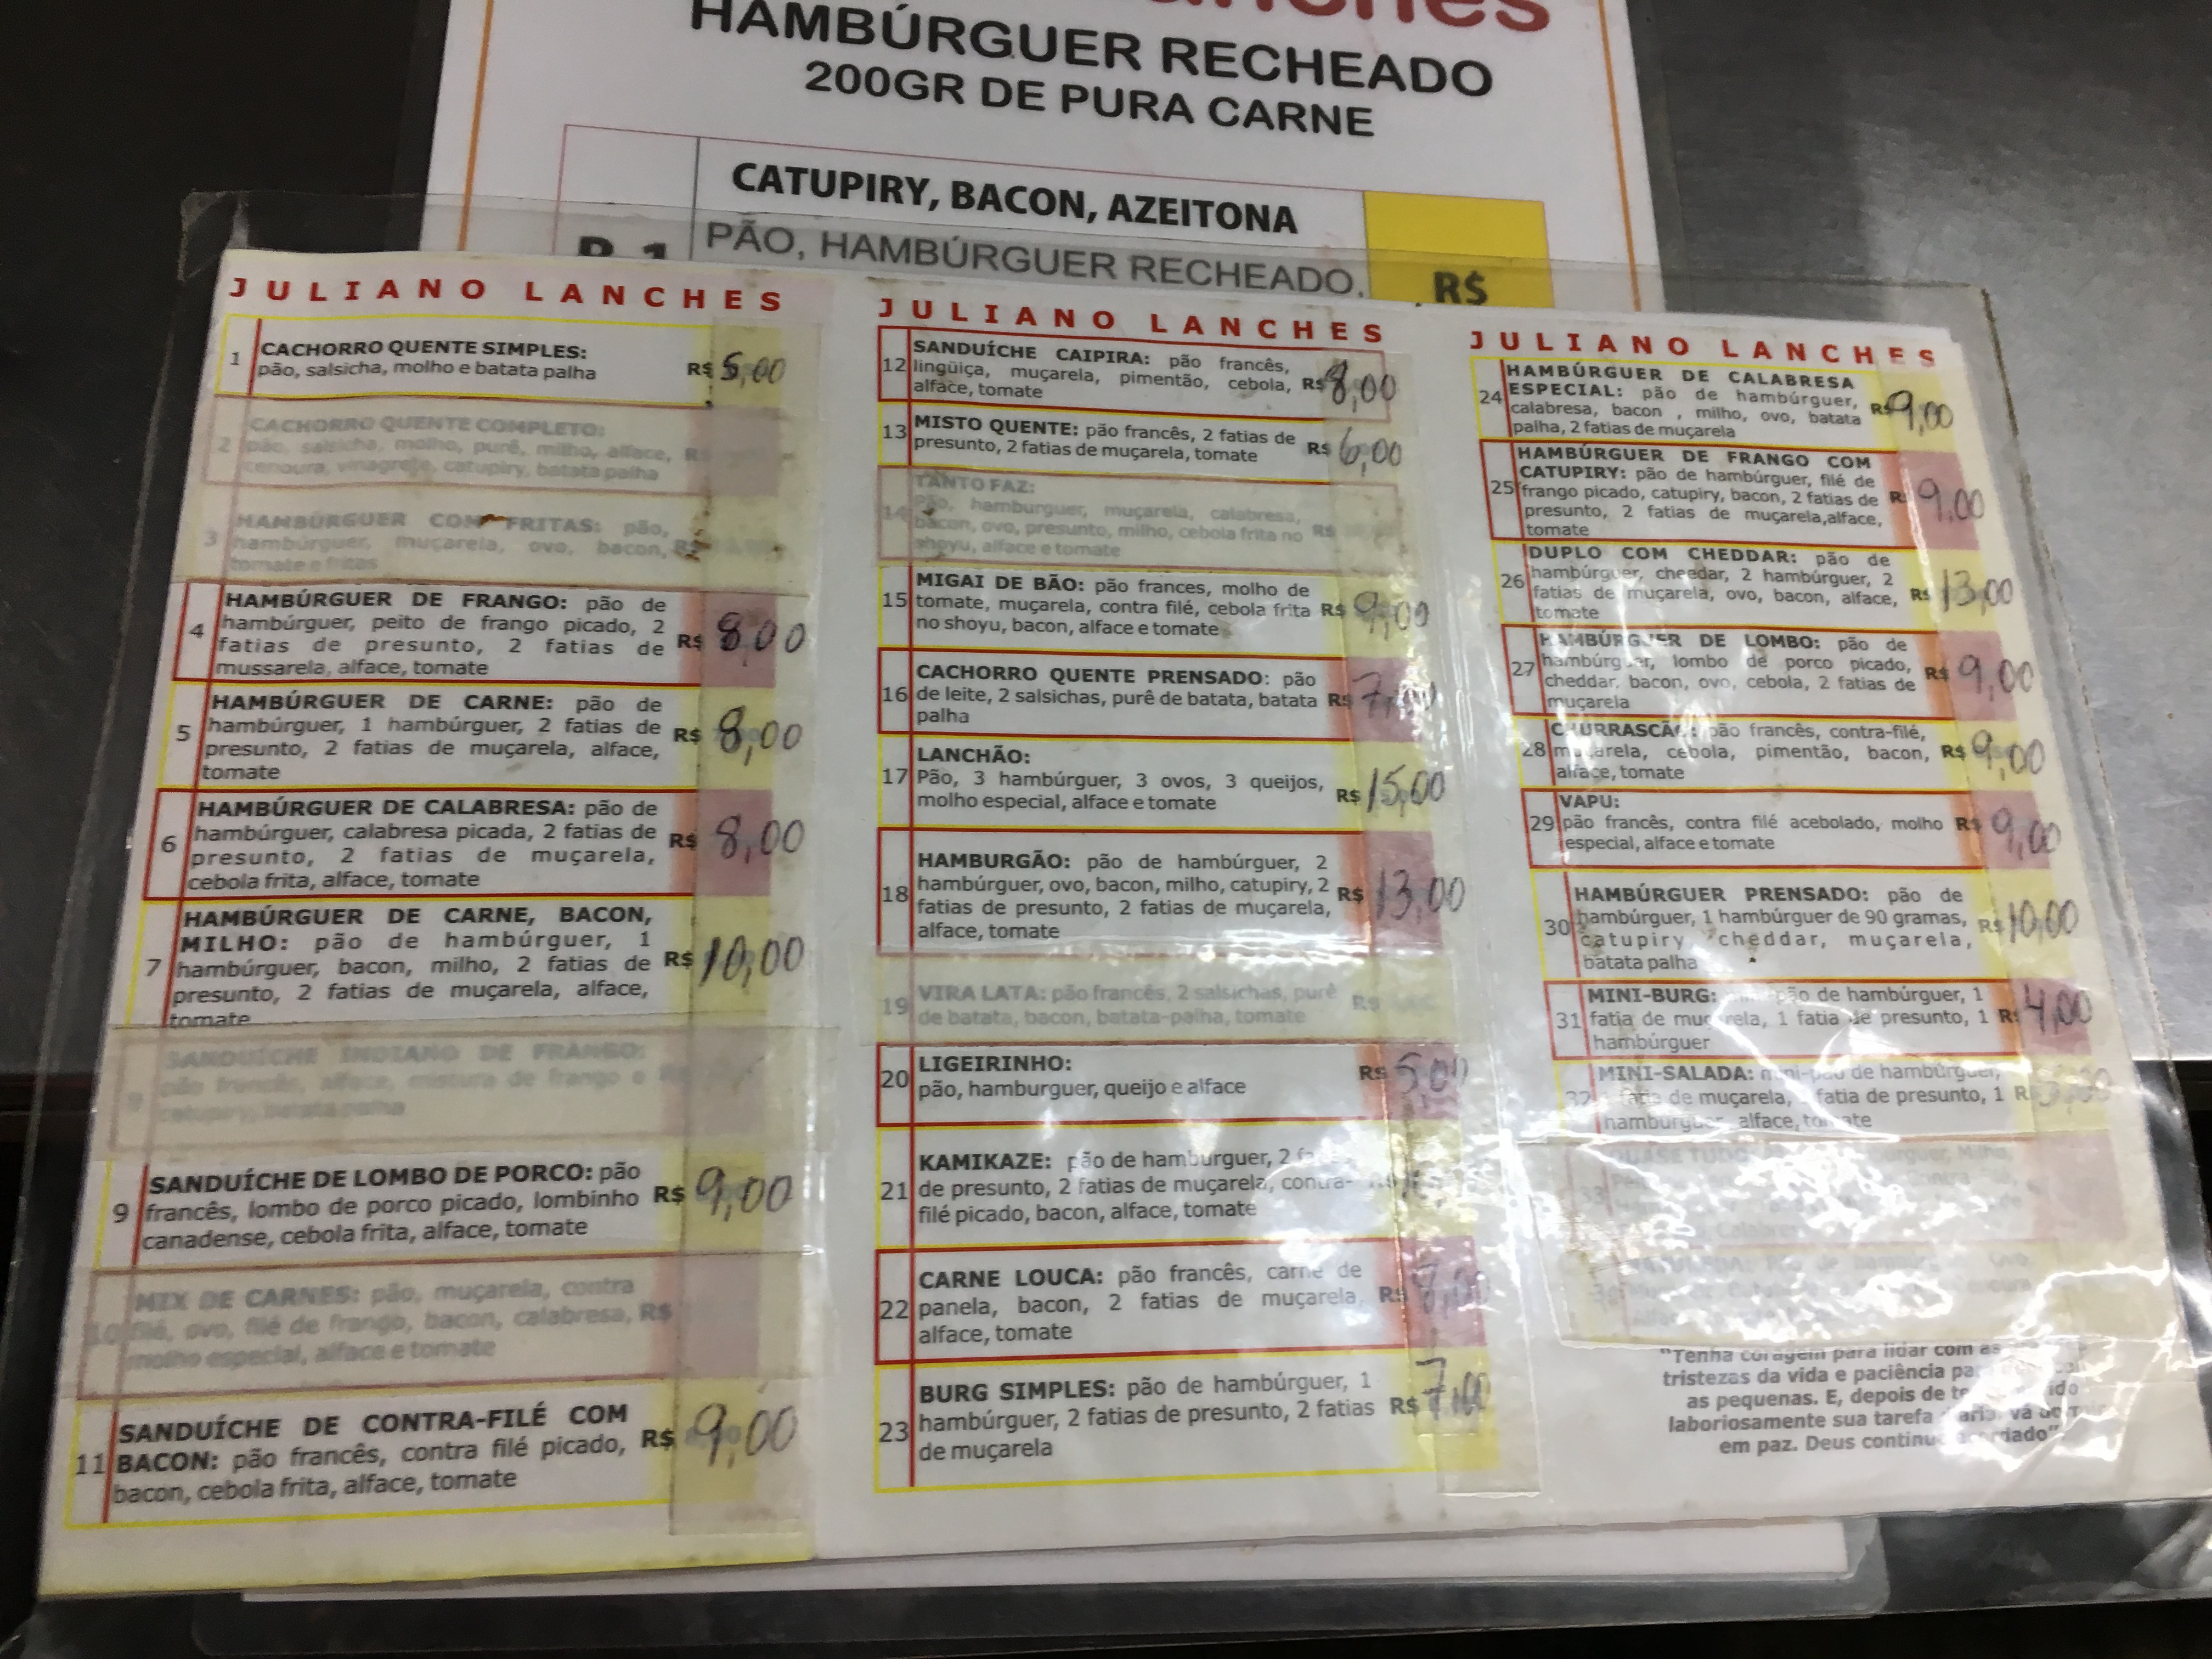 HAMBÚRGUER RECHEADO
200GR DE PURA CARNE
CATUPIRY, BACON, AZEITONA
PÃO, HAMBÚRGUER RECHEADO,
R$
JULIANO LANCHES
1 CACHORRO QUENTE SIMPLES:
pão, salsicha, molho e batata palha R$ 5,00
2 CACHORRO QUENTE COMPLETO:
pão, salsicha, molho, purê, milho, alface,
cenoura, vinagrete, catupiry, batata palha
3 HAMBÚRGUER COM FRITAS: pão,
hambúrguer, muçarela, ovo, bacon,
tomate e fritas
4 HAMBÚRGUER DE FRANGO: pão de
hambúrguer, peito de frango picado, 2
fatias de presunto, 2 fatias de R$ 8,00
mussarela, alface, tomate
5 HAMBÚRGUER DE CARNE: pão de
hambúrguer, 1 hambúrguer, 2 fatias de
presunto, 2 fatias de muçarela, alface, R$ 8,00
tomate
6 HAMBÚRGUER DE CALABRESA: pão de
hambúrguer, calabresa picada, 2 fatias de
presunto, 2 fatias de muçarela, R$ 8,00
cebola frita, alface, tomate
7 HAMBÚRGUER DE CARNE, BACON,
MILHO: pão de hambúrguer, 1
hambúrguer, bacon, milho, 2 fatias de
presunto, 2 fatias de muçarela, alface, R$ 10,00
tomate
9 SANDUÍCHE DE LOMBO DE PORCO: pão
francês, lombo de porco picado, lombinho R$ 9,00
canadense, cebola frita, alface, tomate
MIX DE CARNES: pão, muçarela, contra
filé, ovo, filé de frango, bacon, calabresa, R$
molho especial, alface e tomate
11 SANDUÍCHE DE CONTRA-FILÉ COM
BACON: pão francês, contra filé picado, R$ 9,00
bacon, cebola frita, alface, tomate
JULIANO LANCHES
12 SANDUÍCHE CAIPIRA: pão francês,
lingüiça, muçarela, pimentão, cebola, R$ 8,00
alface, tomate
13 MISTO QUENTE: pão francês, 2 fatias de
presunto, 2 fatias de muçarela, tomate R$ 6,00
14 TANTO FAZ:
pão, hambúrguer, muçarela, calabresa,
bacon, ovo, presunto, milho, cebola frita no R$
shoyu, alface e tomate
15 MIGAI DE BÃO: pão frances, molho de
tomate, muçarela, contra filé, cebola frita R$ 9,00
no shoyu, bacon, alface e tomate
16 CACHORRO QUENTE PRENSADO: pão
de leite, 2 salsichas, purê de batata, batata R$ 7,00
palha
17 LANCHÃO:
Pão, 3 hambúrguer, 3 ovos, 3 queijos, R$ 15,00
molho especial, alface e tomate
18 HAMBURGÃO: pão de hambúrguer, 2
hambúrguer, ovo, bacon, milho, catupiry, 2 R$ 13,00
fatias de presunto, 2 fatias de muçarela,
alface, tomate
19 VIRA LATA: pão francês, 2 salsichas, purê
de batata, bacon, batata-palha, tomate R$
20 LIGEIRINHO:
pão, hamburguer, queijo e alface R$ 5,00
21 KAMIKAZE: pão de hamburguer, 2
de presunto, 2 fatias de muçarela, contra-
filé picado, bacon, alface, tomate
22 CARNE LOUCA: pão francês, carne de
panela, bacon, 2 fatias de muçarela, R$ 8,00
alface, tomate
23 BURG SIMPLES: pão de hambúrguer, 1
hambúrguer, 2 fatias de presunto, 2 fatias R$ 7,00
de muçarela
JULIANO LANCHES
24 HAMBÚRGUER DE CALABRESA
ESPECIAL: pão de hambúrguer,
calabresa, bacon , milho, ovo, batata R$ 9,00
palha, 2 fatias de muçarela
25 HAMBÚRGUER DE FRANGO COM
CATUPIRY: pão de hambúrguer, filé de
frango picado, catupiry, bacon, 2 fatias de R$ 9,00
presunto, 2 fatias de muçarela,alface,
tomate
26 DUPLO COM CHEDDAR: pão de
hambúrguer, cheedar, 2 hambúrguer, 2
fatias de muçarela, ovo, bacon, alface, R$ 13,00
tomate
27 HAMBÚRGUER DE LOMBO: pão de
hambúrguer, lombo de porco picado,
cheddar, bacon, ovo, cebola, 2 fatias de R$ 9,00
muçarela
28 CHURRASCÃO: pão francês, contra-filé,
muçarela, cebola, pimentão, bacon, R$ 9,00
alface, tomate
29 VAPU:
pão francês, contra filé acebolado, molho R$ 9,00
especial, alface e tomate
30 HAMBÚRGUER PRENSADO: pão de
hambúrguer, 1 hambúrguer de 90 gramas, R$ 10,00
catupiry, cheddar, muçarela,
batata palha
31 MINI-BURG: pão de hambúrguer, 1
fatia de muçarela, 1 fatia de presunto, 1 R$ 4,00
hambúrguer
32 MINI-SALADA: mini-pão de hambúrguer,
fatia de muçarela, fatia de presunto, 1
hamburguer, alface, tomate
"Tenha coragem para lidar com as
tristezas da vida e paciência para
as pequenas. E, depois de ter
laboriosamente sua tarefa
em paz. Deus continua